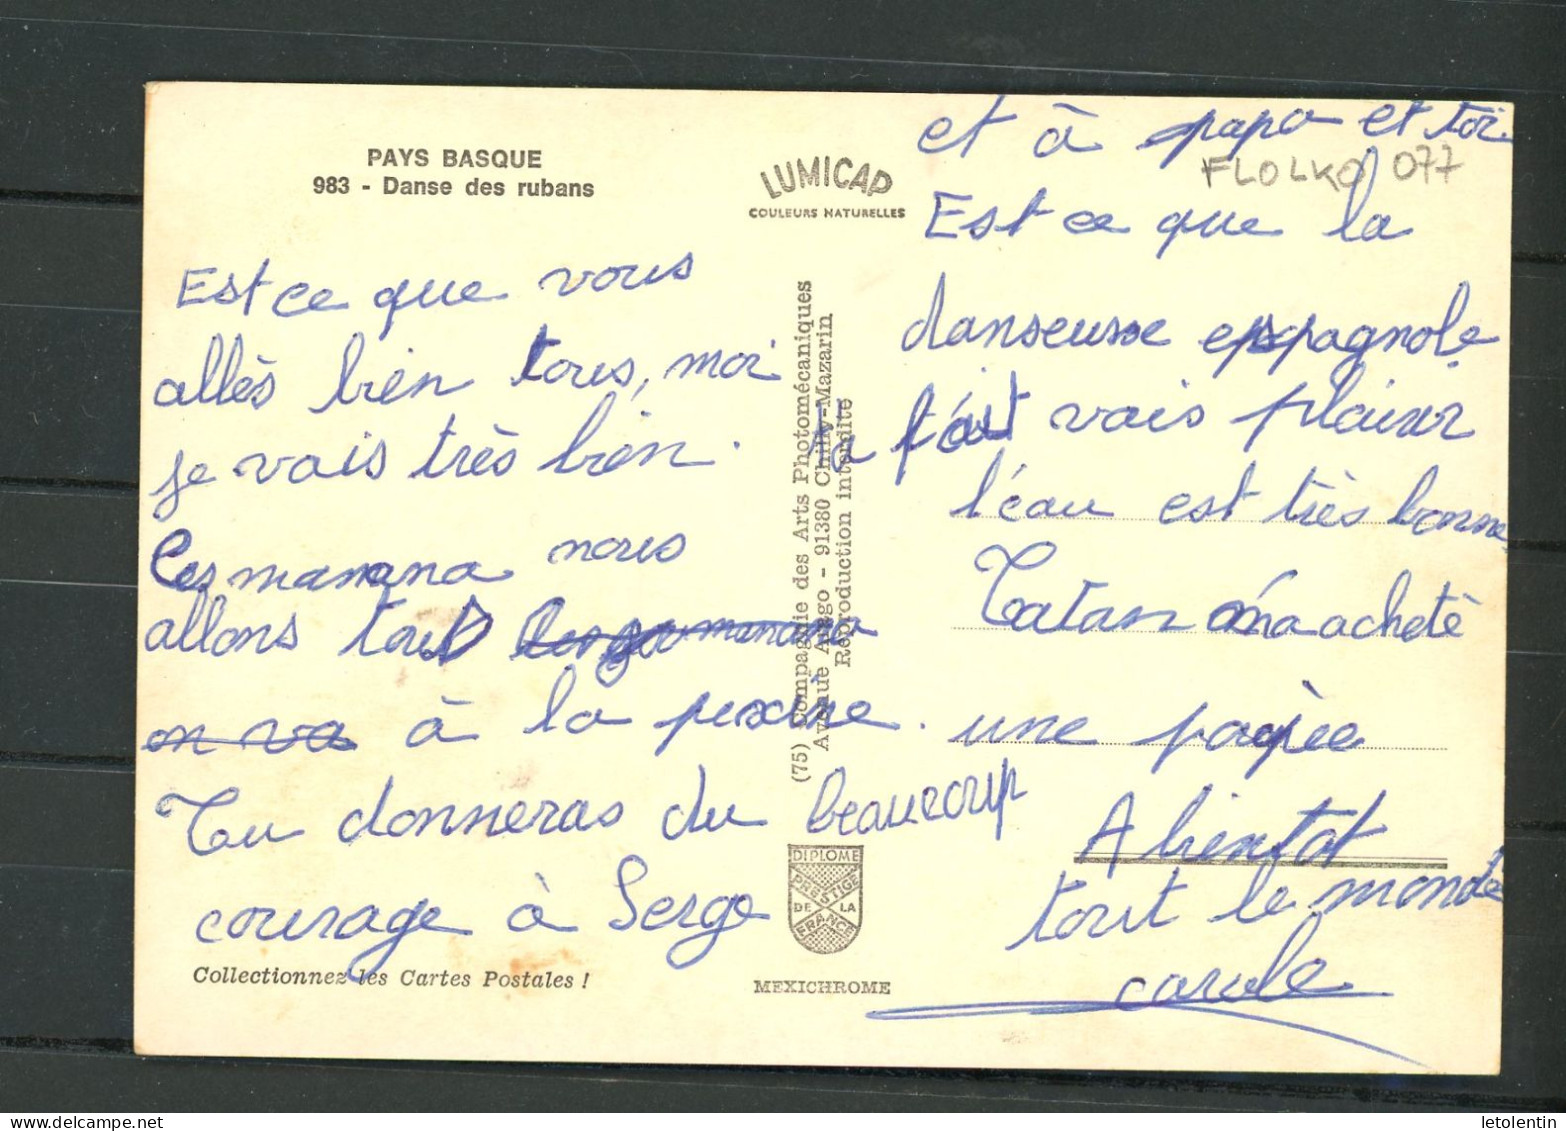 PAYS BASQUE
983 - Danse des rubans
LUMICAP
COULEURS NATURELLES
Est ce que vous
allès bien tous, moi
je vais très bien.
nous
allons tous
on va à la pescine.
Tu donneras du beaucoup
courage à Serge
Collectionnez les Cartes Postales !
(75) Compagnie des Arts Photomécaniques
Avenue Arago - 91380 Chilly-Mazarin
Reproduction interdite
DIPLOME
PRESTIGE
DE LA
FRANCE
MEXICHROME
et à papa et toi.
FLOLKO 077
Est ce que la
danseuse espagnole
ta fait vais plaisir
l'éau est très bonne
Tatan ma acheté
une poupée
A bientot
tout le monde
carole
letolentin